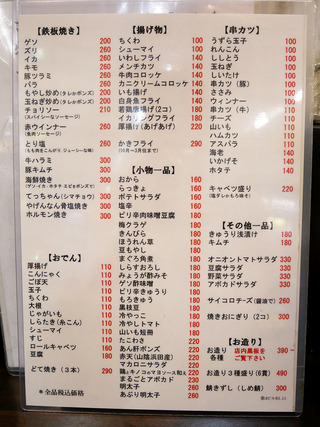 【鉄板焼き】
ゲソ 200
ズリ 200
イカ 200
キモ 200
豚ツラミ 200
バラ 200
もやし炒め(タレorポンズ) 200
玉ねぎ炒め(タレorポンズ) 200
チョリソー 210
(スパイシーなソーセージ)
赤ウインナー 260
(魚肉ソーセージ)
とり塩 260
牛ハラミ 330
豚キムチ 330
海鮮焼き 330
てっちゃん(シマチョウ) 330
やげんなん骨塩焼き 330
ホルモン焼き 330
【おでん】
厚揚げ 110
こんにゃく 110
ごぼ天 110
玉子 110
ちくわ 110
大根 110
じゃがいも 110
しらたき(糸こん) 110
シューマイ 110
すじ 110
ロールキャベツ 160
豆腐 180
どて焼き(3本) 290
※全品税込価格
【揚げ物】
ちくわ 100
シューマイ 140
いわしフライ 140
メンチカツ 140
牛肉コロッケ 140
カニクリームコロッケ 140
いも揚げ 140
白身魚フライ 160
若鶏唐揚げ(2コ) 180
イカリングフライ 180
厚揚げ(あげあげ) 220
かきフライ 290
(10月〜3月位まで)
【小物一品】
おから 160
らっきょ 160
ポテトサラダ 160
塩辛 160
ピリ辛肉味噌豆腐 160
梅クラゲ 180
きんぴら 180
ほうれん草 180
豆もやし 180
まぐろ角煮 180
しらすおろし 180
みょうが酢みそ 180
ゲソ酢味噌 180
ピリ辛きゅうり 180
もろきゅう 180
黒枝豆 180
冷やっこ 180
冷やしトマト 180
山いも短冊 180
たこわさ 220
あん肝ポンズ 220
赤天(山陰浜田産) 220
マカロニサラダ 220
まるごとアボカド 230
明太子 260
あぶり明太子 260
【串カツ】
うずら玉子 100
れんこん 100
ししとう 100
玉ねぎ 100
しいたけ 100
串カツ(豚) 100
ささみ 100
ウィンナー 100
串カツ(牛) 110
チーズ 110
山いも 110
ハムカツ 110
アスパラ 110
海老 140
いかげそ 140
ホタテ 140
キャベツ盛り 220
【その他一品】
きゅうり浅漬け 180
キムチ 180
オニオントマトサラダ 330
豆腐サラダ 330
野菜サラダ 330
アボカドサラダ 330
サイコロチーズ(醤油で) 260
焼きおにぎり(2コ) 300
【お造り】
お造り 店内黒板を 390〜
各種 ご覧下さい
お造り3種盛り(6貫) 490
鯖きずし(しめ鯖) 300